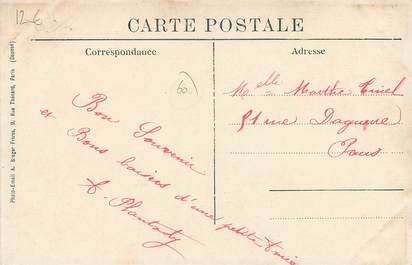 12€
CARTE POSTALE
Correspondance
Adresse
60
Bon Souvenir
et Bons baisers d'une petite Amie
Melle Marthe
51 rue Daguerre
Paris
Photo-Email A. Breger Frères, 9, Rue Thénard, Paris (Déposé)